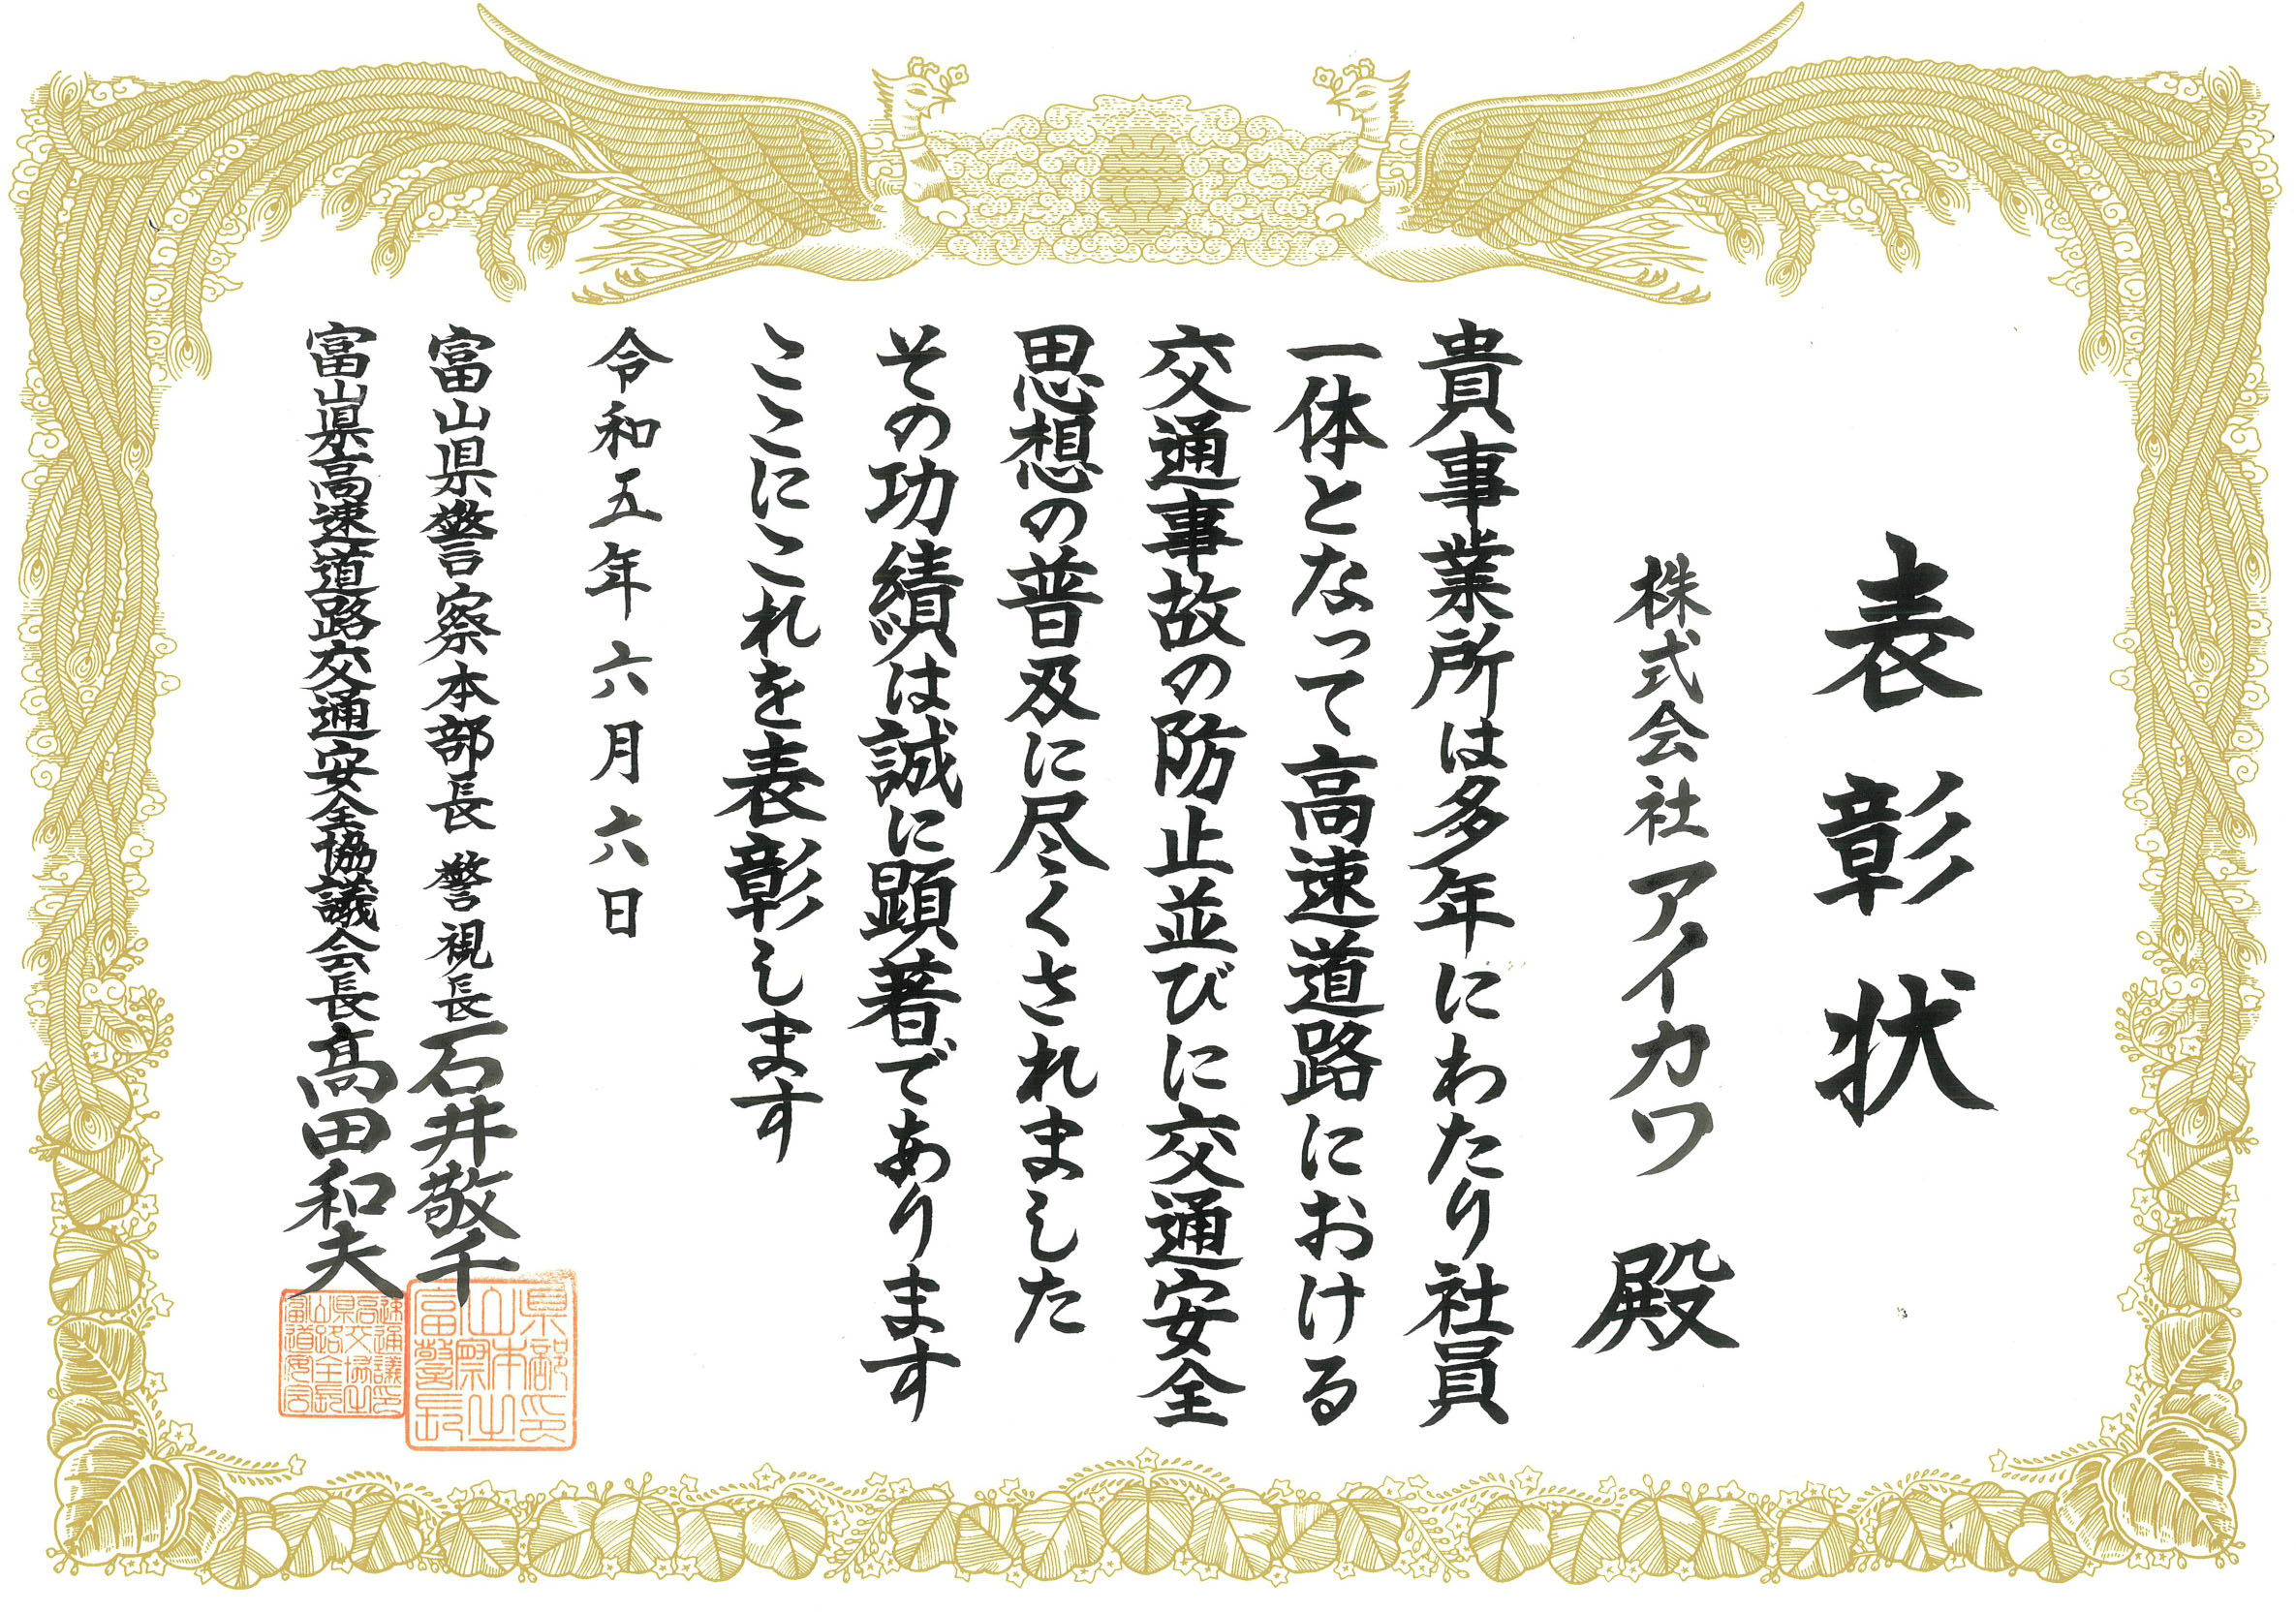 表彰状
株式会社アイカワ 殿
貴事業所は多年にわたり社員
一体となって高速道路における
交通事故の防止並びに交通安全
思想の普及に尽くされました
その功績は誠に顕著であります
ここにこれを表彰します
令和五年六月六日
富山県警察本部長 警視長 石井敬千
富山県高速道路交通安全協議会長 髙田和夫
富山県警察本部長之印